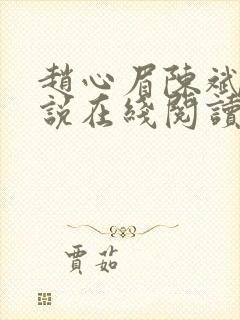 趙心眉陳斌
說在綫閱讀
賈茹